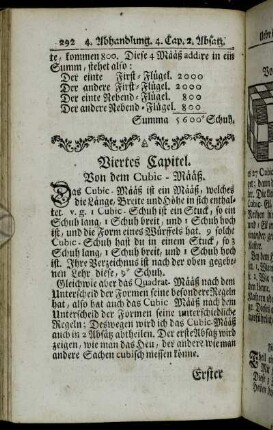 292 4. Abhandlung. 4. Cap. 2. Absatz.
te, kommen 800. Diese 4 Mååß addire in ein
Summ, stehet also:
Der einte First-Flügel. 2000
Der andere First-Flügel. 2000
Der einte Rebend-Flügel. 800
Der andere Rebend-Flügel. 800
Summa 5600' Schuh.
Viertes Capitel.
Von dem Cubic-Mååß.
Das Cubic-Mååß ist ein Mååß, welches
die Länge, Breite und Höhe in sich enthal-
tet. v. g. 1 Cubic-Schuh ist ein Stuck, so ein
Schuh lang, 1 Schuh breit, und 1 Schuh hoch
ist, und die Form eines Würfels hat. 9 solche
Cubic-Schuh hast du in einem Stuck, so 3
Schuh lang, 1 Schuh breit, und 1 Schuh hoch
ist. Ihre Verzeichnus ist nach der oben gegebe-
nen Lehr diese, 9''' Schuh.
Gleichwie aber das Quadrat-Mååß nach dem
Unterscheid der Formen seine besondere Regeln
hat, also hat auch das Cubic Mååß nach dem
Unterscheid der Formen seine unterschiedliche
Regeln; Deswegen wird ich das Cubic-Mååß
auch in 2 Absatz abtheilen. Der erste Absatz wird
zeigen, wie man das Heu, der andere wie man
andere Sachen cubisch messen könne.
Erster